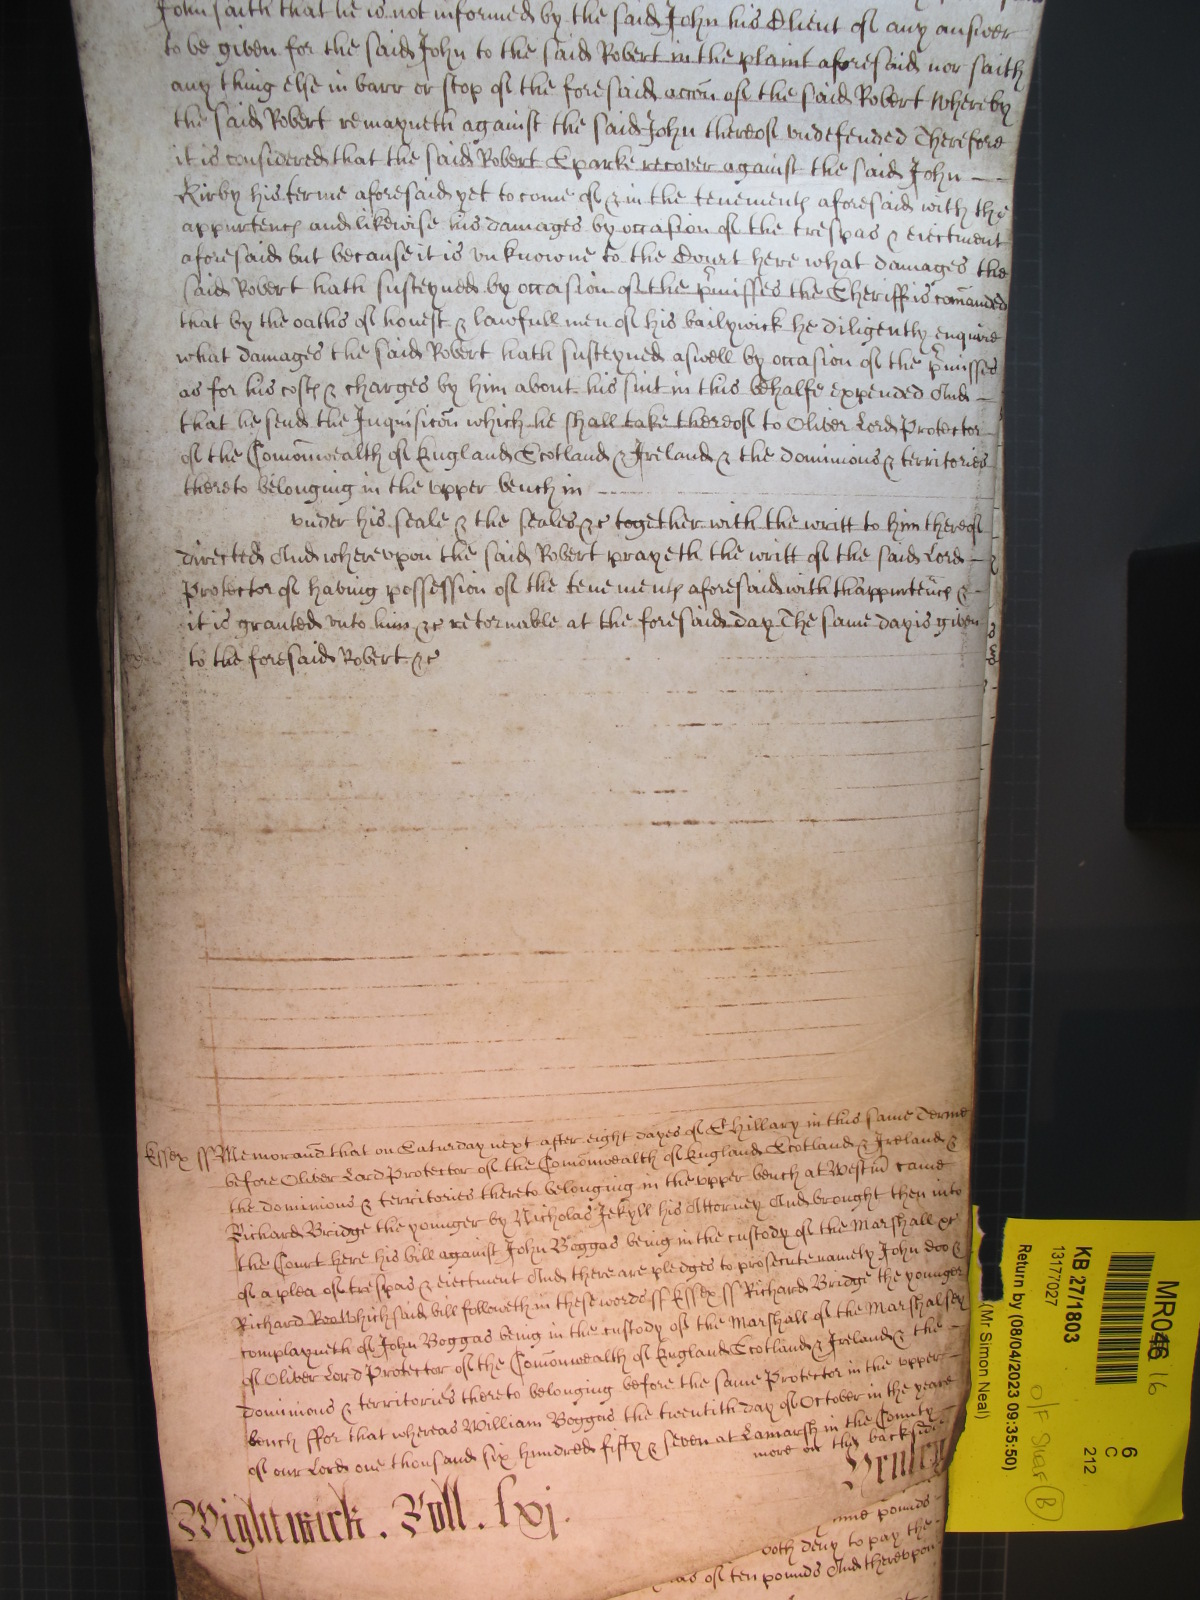 John saith that he is not informed by the said John his Client of any answer
to be given for the said John to the said Robert in the plaint aforesaid nor saith
any thing else in barr or stop of the foresaid accõn of the said Robert Whereby
the said Robert remayneth against the said John thereof undefended Therefore
it is considered that the said Robert Sparke recover against the said John
Kirby his terme aforesaid yet to come of & in the tenements aforesaid with the
appurtencs and likewise his damages by occasion of the trespas & eiectment
aforesaid but because it is unknowne to the Court here what damages the
said Robert hath susteyned by occasion of the p̃misses the Sheriff is comanded
that by the oaths of honest & lawfull men of his bailywick he diligently enquire
what damages the said Robert hath susteyned aswell by occasion of the p̃misses
as for his costs & charges by him about his suit in this behalfe expended And
that he send the Inquisicõn which he shall take thereof to Oliver Lord Protector
of the Comõnwealth of England Scotland & Ireland & the dominions & territories
thereto belonging in the upper bench in
under his seale & the seales &c together with the writt to him thereof
directed And whereupon the said Robert prayeth the writt of the said Lord
Protector of having possession of the tenements aforesaid with thappurtencs &
it is granted unto him &c retornable at the foresaid day The same day is given
to the foresaid Robert &c
Essex ss Memorand that on Saturday next after eight dayes of St Hillary in this same Terme
before Oliver Lord Protector of the Comõnwealth of England Scotland & Ireland &
the dominions & territories thereto belonging in the upper bench at Westm̃ came
Richard Bridge the younger by Nicholas Jekyll his Attorney And brought then into
the Court here his bill against John Boggas being in the custody of the Marshall &c
of a plea of trespas & eiectment And there are pledges to prosecute namely John doo &
Richard Roo Which said bill followeth in these words ss Essex ss Richard Bridge the younger
complayneth of John Boggas being in the custody of the Marshall of the Marshalsey
of Oliver Lord Protector of the Comõnwealth of England Scotland & Ireland & the
dominions & territories thereto belonging before the same Protector in the upper
bench ffor that whereas William Boggas the twentith day of October in the yeare
of our Lord one thousand six hundred fifty & seven at Lamarsh in the County
more on this backside
Wightwick. Roll. lxj.
pounds
doth deny to pay the
of ten pounds And thereupon
MR046 16
6
C
212
KB 27/1803
13177027
Return by (08/04/2023 09:35:50)
(Mr Simon Neal)
O/F Shelf B